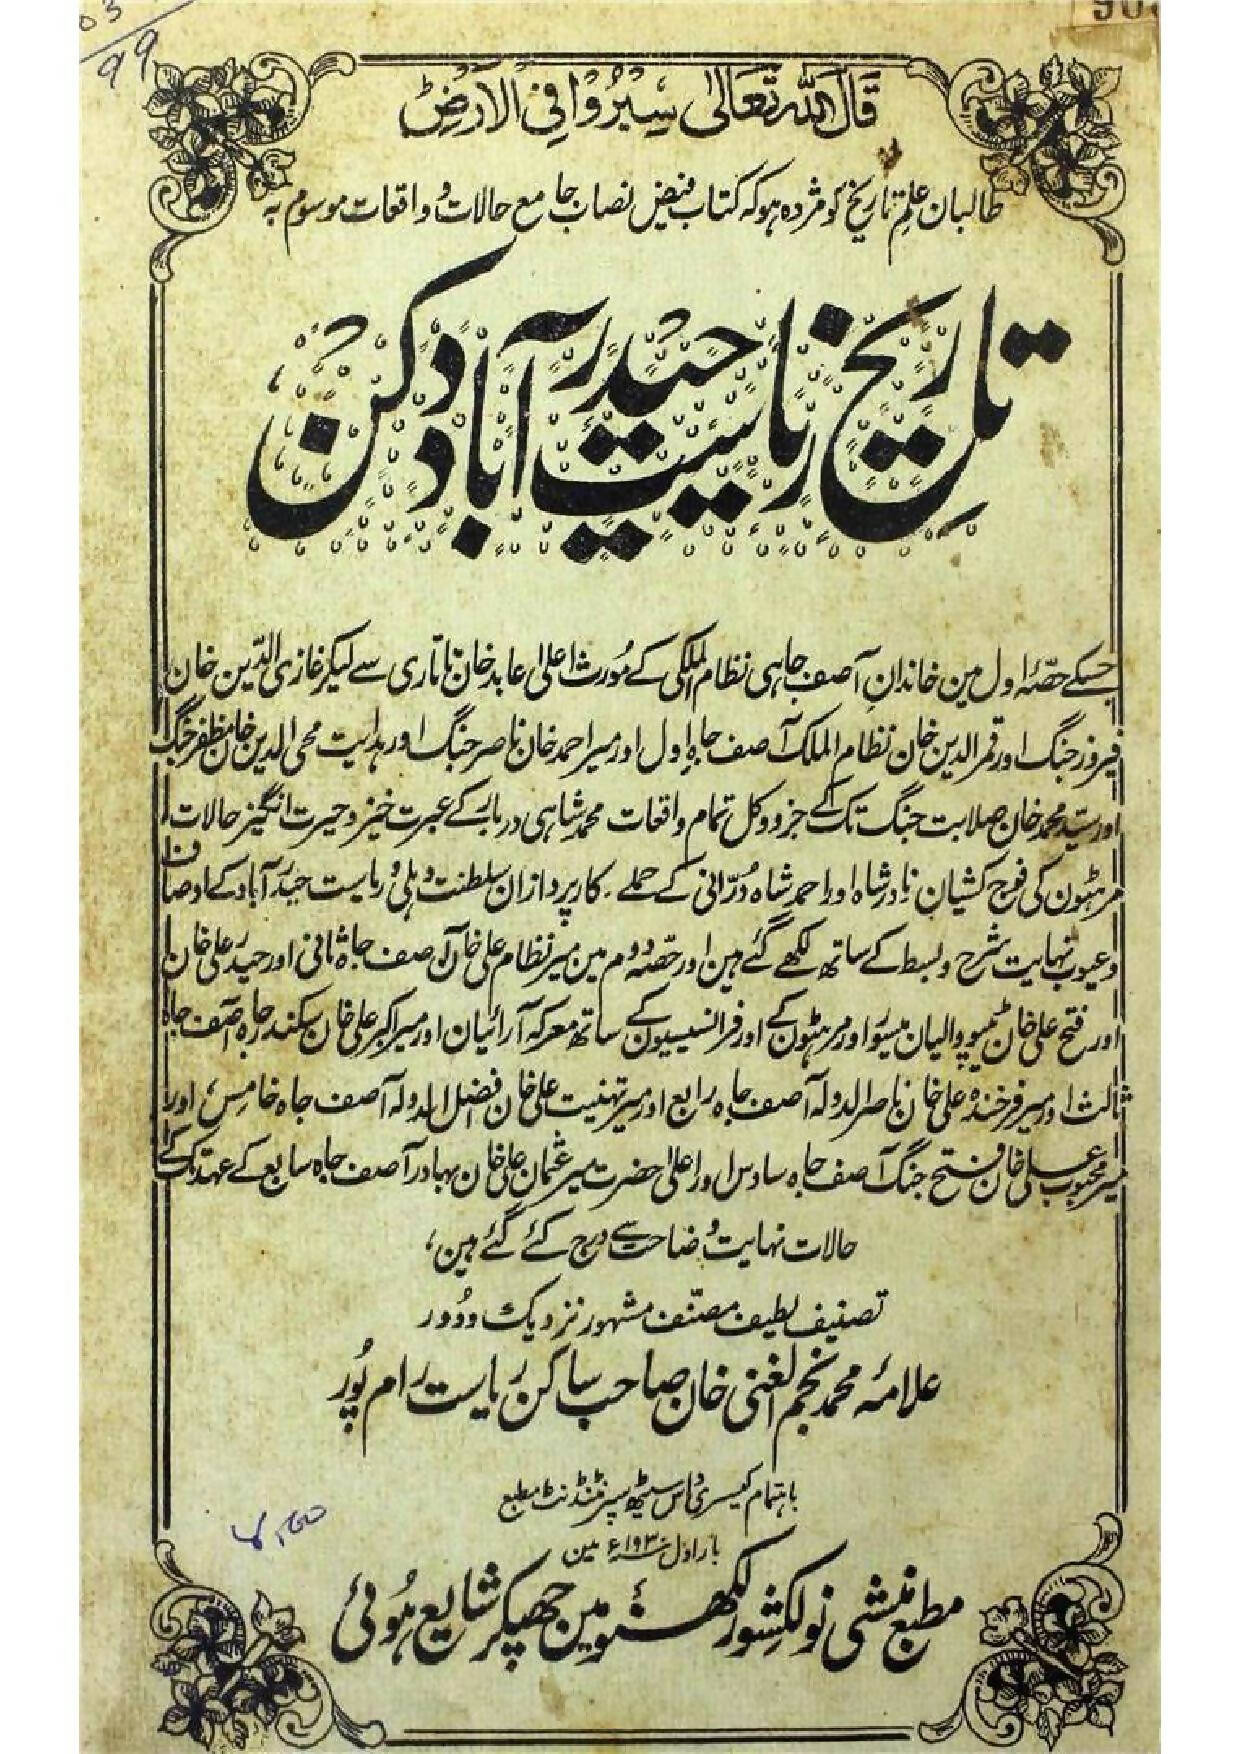 قال الله تعالیٰ سیروا فی الارض
طالبان علم تاریخ کو مژدہ ہو کہ کتاب فیض نصاب جامع حالات و واقعات موسوم بہ
تاریخ ریاست حیدرآباد دکن
جسکے حصّۂ اول مین خاندانِ آصف جاہی نظام الملکی کے مورث اعلیٰ عابد خان تاتاری سے لیکر غازی الدّین خان
فیروز جنگ اور قمر الدین خان نظام الملک آصف جاہ اول اور میر احمد خان ناصر جنگ اور ہدایت محی الدین خان مظفر جنگ
اور سیّد محمد خان صلابت جنگ تک کے جزو وکل تمام واقعات محمد شاہی دربار کے عبرت خیز و حیرت انگیز حالات
مرہٹون کی فوج کشیان نادر شاہ اور احمد شاہ درّانی کے حملے۔ کارپردازان سلطنت دہلی و ریاست حیدرآباد کے اوصاف
و عیوب نہایت شرح و بسط کے ساتھ لکھے گئے ہین اور حصّہ دوم مین میر نظام علی خان آصف جاہ ثانی اور حیدر علی خان
اور فتح علی خان ٹیپو والیان میسور اور مرہٹون کے اور فرانسیسیون کے ساتھ معرکہ آرائیان اور میر اکبر علی خان سکندر جاہ آصف جاہ
ثالث اور میر فرخندہ علی خان ناصر الدولہ آصف جاہ رابع اور میر تہنیت علی خان افضل الدولہ آصف جاہ خامس، اور
میر محبوب علی خان فتح جنگ آصف جاہ سادس اور اعلیٰ حضرت میر عثمان علی خان بہادر آصف جاہ سابع کے عہد تک کے
حالات نہایت وضاحت سے درج کئے گئے ہین،
تصنیف لطیف مصنّف مشہور نزدیک و دور
علامۂ محمد نجم الغنی خان صاحب ساکن ریاست رام پور
باہتمام کیسری داس سیٹھ سپرنٹنڈنٹ مطبع
بار اول سنہ ۱۹۳۰ء مین
مطبع منشی نولکشور لکھنؤ مین چھپکر شایع ہوئی